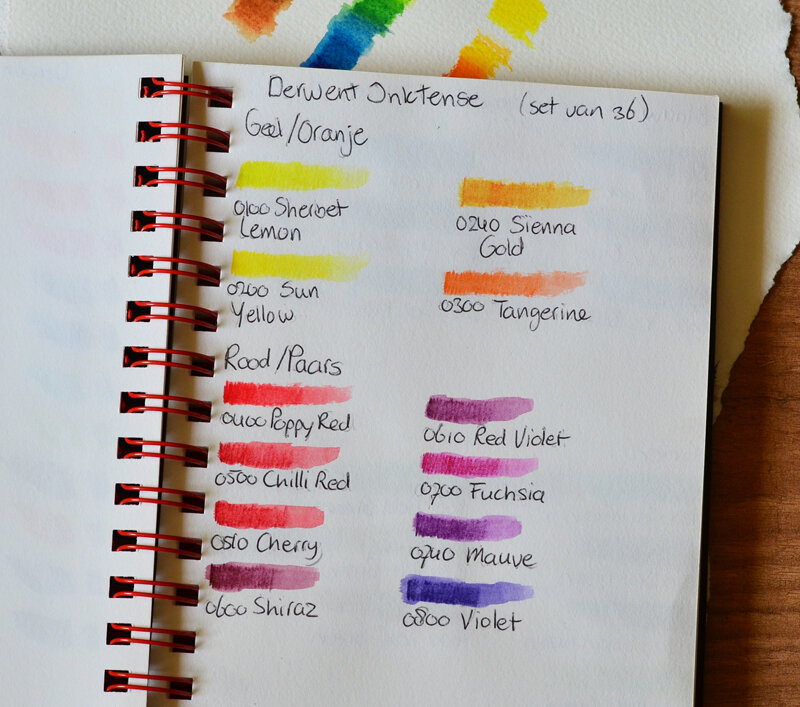 Derwent Inktense (set van 36)
Geel/Oranje
0100 Sherbet
Lemon
0240 Sienna
Gold
0200 Sun
Yellow
0300 Tangerine
Rood/Paars
0400 Poppy Red
0610 Red Violet
0500 Chilli Red
0700 Fuchsia
0510 Cherry
0740 Mauve
0600 Shiraz
0800 Violet